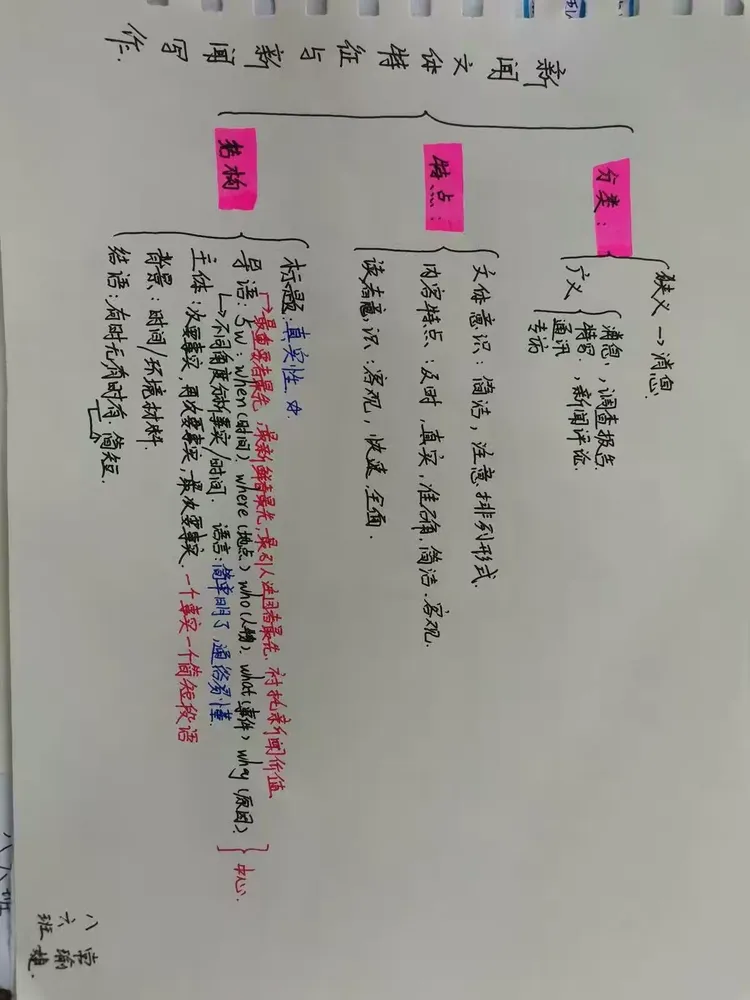 新闻文体特征与新闻写作.
分类:
狭义→消息
广义
消息,调查报告.
特写,新闻评论.
通讯
专访
特点:
文体意识:简洁,注意排列形式.
内容特点:及时,真实,准确,简洁,客观.
读者意识:客观,快速全面.
结构
标题:真实性.
最重要者最先,最新鲜者最先,最引人注目者最先.衬托新闻价值
导语:5w:when(时间)、where(地点)who(人物).what(事件)why(原因)
中心.
不同角度分析事实/时间.语言:简单明了,通俗易懂.
主体:次要事实,再次要事实,最次要事实.一个事实一个简短段语
背景:时间/环境材料.
结语:有时无有时有.简短.
八六班
八六班